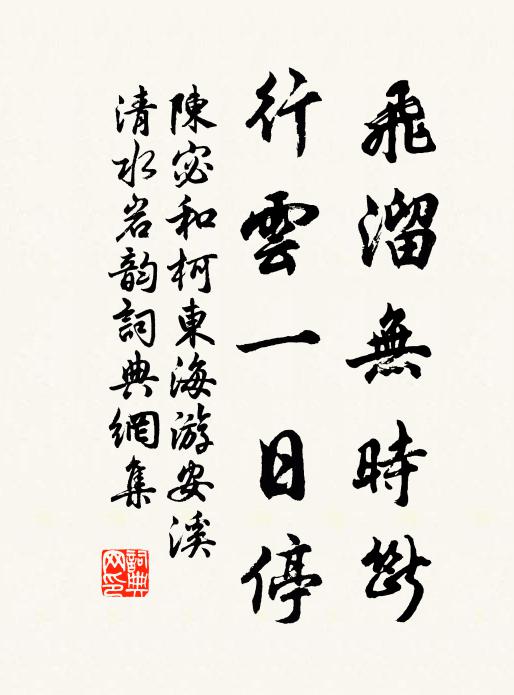 飛溜無時斷
行雲一日停
陳宓和柯東海游安溪
清水岩韵詞典網集
詞典网印